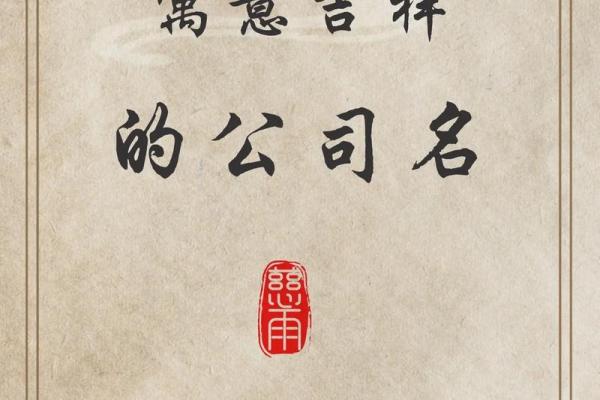 寓意吉祥
的公司名
慈雨